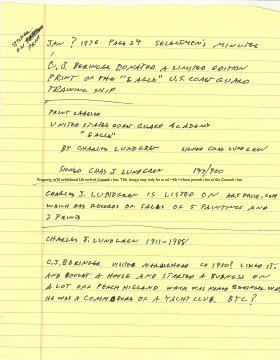 STORED
ON
PAPER
JAN ? 1976 PAGE 24 SELECTMEN'S MINUTES
C. J. BERINGER DONATED A LIMITED EDITION
PRINT OF THE "EAGLE" U.S. COAST GUARD
TRAINING SHIP
PRINT LABELED
UNITED STATES COAST GUARD ACADEMY
"EAGLE"
BY CHARLES LUNDGREN SIGNED CHAS LUNDGREN
SIGNED CHAS J. LUNDGREN 197/700
Property of
This image may only be used with
permission of the
CHARLES J. LUNDGREN IS LISTED ON ARTPRICE.COM
WHICH HAS RECORDS OF SALES OF 5 PAINTINGS AND
2 PRINTS
CHARLES J. LUNDGREN 1911-1988
C. J. BERINGER VISITED MARBLEHEAD CA 1950? LIKED IT,
AND BOUGHT A HOUSE AND STARTED A BUSINESS ON
A LOT OFF PEACH HIGHLAND WHICH WAS NAMED BERINGER WAY
HE WAS A COMMODORE OF A YACHT CLUB. BYC?